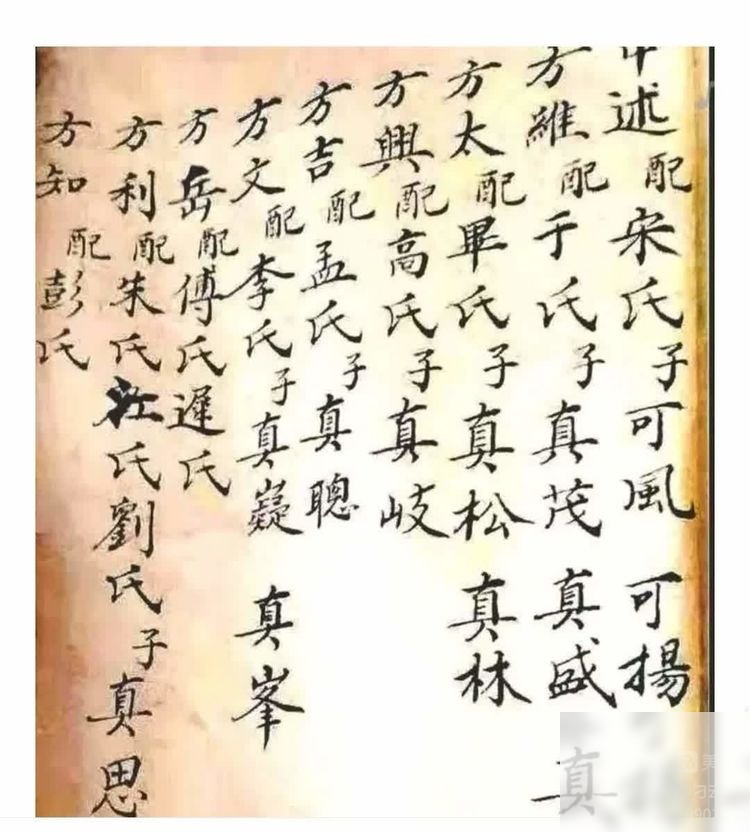 述配宋氏子可風 可揚
方維配于氏子真茂 真盛
方太配畢氏子真松 真林
方興配高氏子真岐
方吉配孟氏子真聰
方文配李氏子真嶷 真峯
方岳配傅氏遲氏
方利配朱氏江氏劉氏子真思
方知配彭氏
真